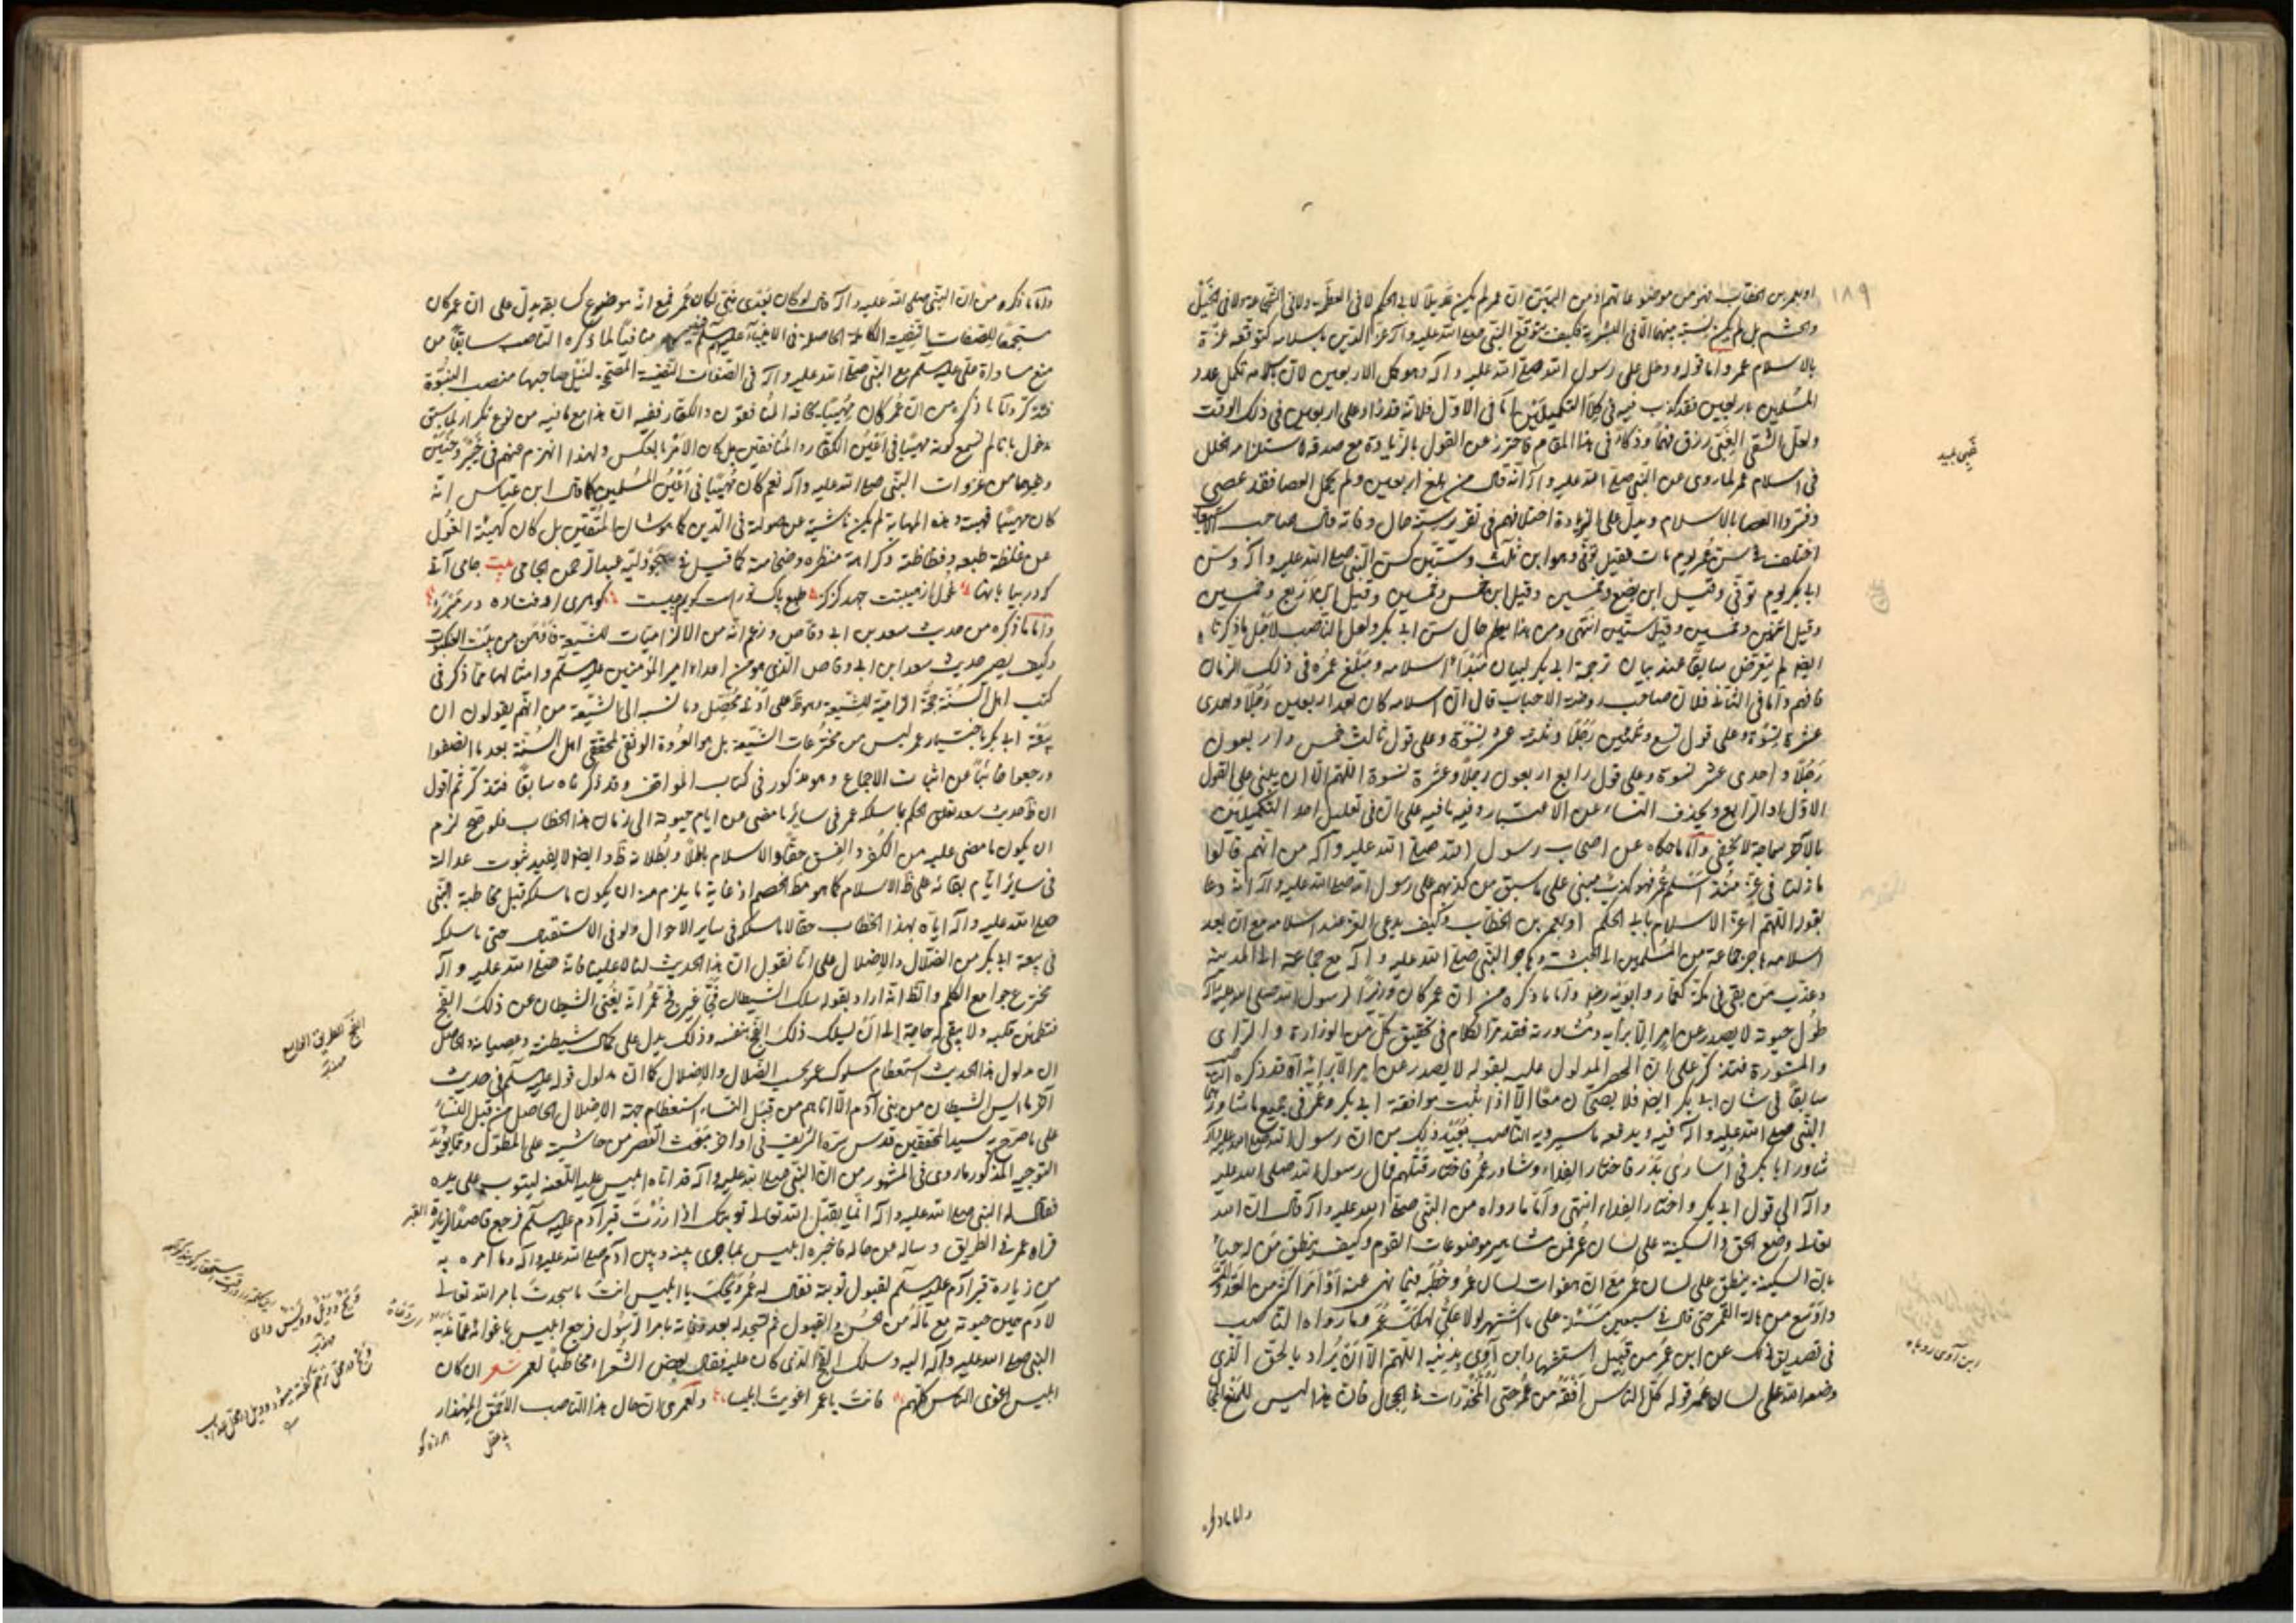 ١٨٩
او بعمر بن الخطاب فهو من موضوعاتهم اذ من البيّن ان عمر لم يكن عديلا لابي الحكم لا في العظمة ولا في الشجاعة ولا في الخيل
والحشم بل لم يكن نسبة بينهما الا في البشرية فكيف يتوقع النبي صلى الله عليه وآله عز الدين باسلامه كتوقعه عزة
بالاسلام عمر واما قوله ودخل على رسول الله صلى الله عليه وآله وهو كمل الاربعين لان باسلامه تكمل عدد
المسلمين باربعين فقد كذب فيه في كلا التكميلين اما في الاول فلانه قد زاد على اربعين في ذلك الوقت
ولعل الشقي الغبي رزق فهما وذكاء في هذا المقام فاحترز عن القول بالزيادة مع صدقه لاستلزامه لخلل
في اسلام عمر لما روى عن النبي صلى الله عليه وآله انه قال من بلغ اربعين ولم يحمل العصا فقد عصى
وفسروا العصا بالاسلام ويدل على الزيادة اختلافهم في تقرير سنه حال وفاته قال صاحب
اختلف في سن عمر يوم مات فقيل توفي وهو ابن ثلث وستين كسن النبي صلى الله عليه وآله وسن
ابا بكر يوم توفي وقيل ابن بضع وخمسين وقيل ابن خمس وخمسين وقيل ابن اربع وخمسين
وقيل وخمسين وقيل ستين انتهى ومن هذا يعلم حال سن ابي بكر ولعل الناصب لاجل ما ذكرناه
ايضا لم يتعرض سابقا عند بيان ترجمة ابي بكر لبيان مبدأ اسلامه ومبلغ عمره في ذلك الزمان
فافهم واما في الثاني فلان صاحب روضة الاحباب قال ان اسلامه كان بعد اربعين رجلا واحدى
عشرة نسوة وعلى قول تسع وثلثين رجلا وثلث عشرة نسوة وعلى قول ثالث خمس واربعون
رجلا واحدى عشر نسوة وعلى قول رابع اربعون رجلا وعشرة نسوة اللهم الا ان يبنى على القول
الاول او الرابع ويحذف النساء عن الاعتبار وفيه ما فيه على ان في تعليل احد التكميلين
بالآخر سماجة لا يخفى واما ما حكاه عن اصحاب رسول الله صلى الله عليه وآله من انهم قالوا
ما زلنا في عزة منذ اسلم عمر فهو كذب مبني على ما سبق من كذبهم على رسول الله صلى الله عليه وآله انه دعا
بقوله اللهم اعز الاسلام بابي الحكم او بعمر بن الخطاب وكيف يدعى العزة عند اسلامه مع ان بعد
اسلامه هاجر جماعة من المسلمين الى الحبشة وهاجر النبي صلى الله عليه وآله مع جماعة الى المدينة
وعذب من بقي في مكة كعمار وابويه واما ما ذكره من ان عمر كان وزيرا لرسول الله صلى الله عليه وآله
طول حيوته لا يصدر عن امر الا برأيه ومشاورته فقد مر الكلام في تحقيق كل من الوزارة والرأى
والمشورة فتذكر على ان الحصر المدلول عليه بقوله لا يصدر عن امر الا برائه قد ذكره
سابقا في شان ابي بكر ايضا فلا يصحان معا الا اذا ثبت موافقة ابي بكر وعمر في جميع ما شاور
النبي صلى الله عليه وآله فيه ويدفعه ما سيرويه الناصب بعيد ذلك من ان رسول الله صلى الله عليه وآله
شاور ابا بكر في اسارى بدر فاختار الفداء وشاور عمر فاختار قتلهم فمال رسول الله صلى الله عليه
وآله الى قول ابي بكر واختار الفداء انتهى واما ما رواه من النبي صلى الله عليه وآله قال ان الله
تعالى وضع الحق والسكينة على لسان عمر فمن مشاهير موضوعات القوم وكيف ينطق من له حياء
بان السكينة ينطق على لسان عمر مع ان هفوات لسان عمر وخطبه فيما نهى عنه او امر اكثر من العد
واوسع من هالة القمر حتى قال في سبعين مسئلة على ما اشتهر لولا علي لهلك عمر وما رواه الناصب
في تصديق ذلك عن ابن عمر من قبيل استشهاد ابن آوى بذنبه اللهم الا ان يراد بالحق الذي
وضعه الله على لسان عمر قوله كل الناس افقه من عمر حتى المخدرات في الحجال فان هذا ليس
واما ما ذكره
غبي بليد
ابن آوى روباه
واما ما ذكره من ان النبي صلى الله عليه وآله قال لو كان بعدى نبي لكان عمر فمع انه موضوع كسابقه يدل على ان عمر كان
مستجمعا للصفات النفسية الكاملة الحاصلة في الانبياء عليهم السلم فيكون منافيا لما ذكره الناصب سابقا من
منع مساواة علي عليه السلم مع النبي صلى الله عليه وآله في الصفات النفسية المصححة لنيل صاحبها منصب النبوة
فتذكر واما ما ذكره من ان عمر كان مهيبا يخافه المنافقون والكفار ففيه ان هذا مع ما فيه من نوع تكرار لما سبق
مدخول بانا لم نسمع كونه مهيبا في اعين الكفار والمنافقين بل كان الامر بالعكس ولهذا انهزم عنهم في خيبر وحنين
وغيرهما من غزوات النبي صلى الله عليه وآله نعم كان مهيبا في اعين المسلمين كما قال ابن عباس انه
كان مهيبا فهبته وهذه المهابة لم يكن ناشية عن صولة في الدين كما هو شان المتقين بل كان كهيئة الغول
عن غلظة طبعه وفظاظته وكراهة منظره وضخامته كما قيل في هجو عبد الرحمن الجامي بيت جامى آنى
كه در بيابانها غول از هيبتت حذر كردي طبع پاك تو راست گويم چيست گوهرى اوفتاده در
واما ما ذكره من حديث سعد بن ابي وقاص وزعم انه من الالزاميات للشيعة فاوهن من بيت العنكبوت
وكيف يصير حديث سعد ابن ابي وقاص الذي هو من اعداء امير المؤمنين عليه السلم وامثالها مما ذكر في
كتب اهل السنة حجة الزامية للشيعة على ادنى محصل وما نسب الى الشيعة من انهم يقولون ان
بيعة ابي بكر باختيار عمر ليس من مخترعات الشيعة بل هو العروة الوثقى لمحققي اهل السنة بعد ما انصفوا
ورجعوا خائبا عن اثبات الاجماع وهو مذكور في كتاب المواقف وقد ذكرناه سابقا فتذكر ثم اقول
ان ظ حديث سعد تعلق الحكم بما سلكه عمر في ساير ما مضى من ايام حيوته الى زمان هذا الخطاب فلو صح لزم
ان يكون ما مضى عليه من الكفر والفسق حقا والاسلام باطلا وبطلانه ظ وايضا لا يفيد ثبوت عدالة
في ساير ايام بقائه على ظ الاسلام كما هو مط الخصم اذ غاية ما يلزم منه ان يكون ما سلكه قبل مخاطبة النبي
صلى الله عليه وآله اياه بهذا الخطاب حقا لا ما سلكه في ساير الاحوال ولو في الاستقبال حتى ما سلكه
في بيعة ابي بكر من الضلال والاضلال على انا نقول ان هذا الحديث لنا لا علينا فانه صلى الله عليه وآله
مخترع جوامع الكلم والظ انه اراد بقوله سلك الشيطان فجا غير فج عمر انه يغنى الشيطان عن ذلك الفج
فتطمئن قلبه ولا يبقى له حاجة الى ان يسلك ذلك الفج بنفسه وذلك يدل على كمال شيطنته وعصيانه والحاصل
ان مدلول هذا الحديث استعظام سلوك عمر بحسب الضلال والاضلال كما ان مدلول قوله عليه السلم في حديث
آخر ما ايس الشيطان من بني آدم الا اتاهم من قبل النساء استعظام جهة الاضلال الحاصل من قبل النساء
على ما صرح به سيد المحققين قدس سره الشريف في اواخر مبحث القصر من حاشيته على المطول ومما يؤيد
التوجيه المذكور ما روى في المشهور من ان النبي صلى الله عليه وآله قد اتاه ابليس عليه اللعنة ليتوب على يده
فقال له النبي صلى الله عليه وآله انما يقبل الله تعالى توبتك اذا زرت قبر آدم عليه السلم فرجع قاصدا لزيارة القبر
فرآه عمر في الطريق وساله عن حاله فاخبره ابليس بما جرى بينه وبين صلى الله عليه وآله وما امره به
من زيارة قبر آدم عليه السلم لقبول توبته فقال له عمر ويحك يا ابليس انت ما سجدت بامر الله تعالى
لآدم حين حيوته مع ما له من الحسن والقبول فتسجد له بعد بامر الرسول فرجع ابليس باغوائه عما
النبي صلى الله عليه وآله اليه وسلك الفج الذي كان عليه فقال بعض الشعراء مخاطبا لعمر شعر ان كان
ابليس اغوى الناس كلهم فانت يا عمر اغويت ابليسا ولعمرى ان حال هذا الناصب الاحمق المهذار
الفج الطريق الواسع